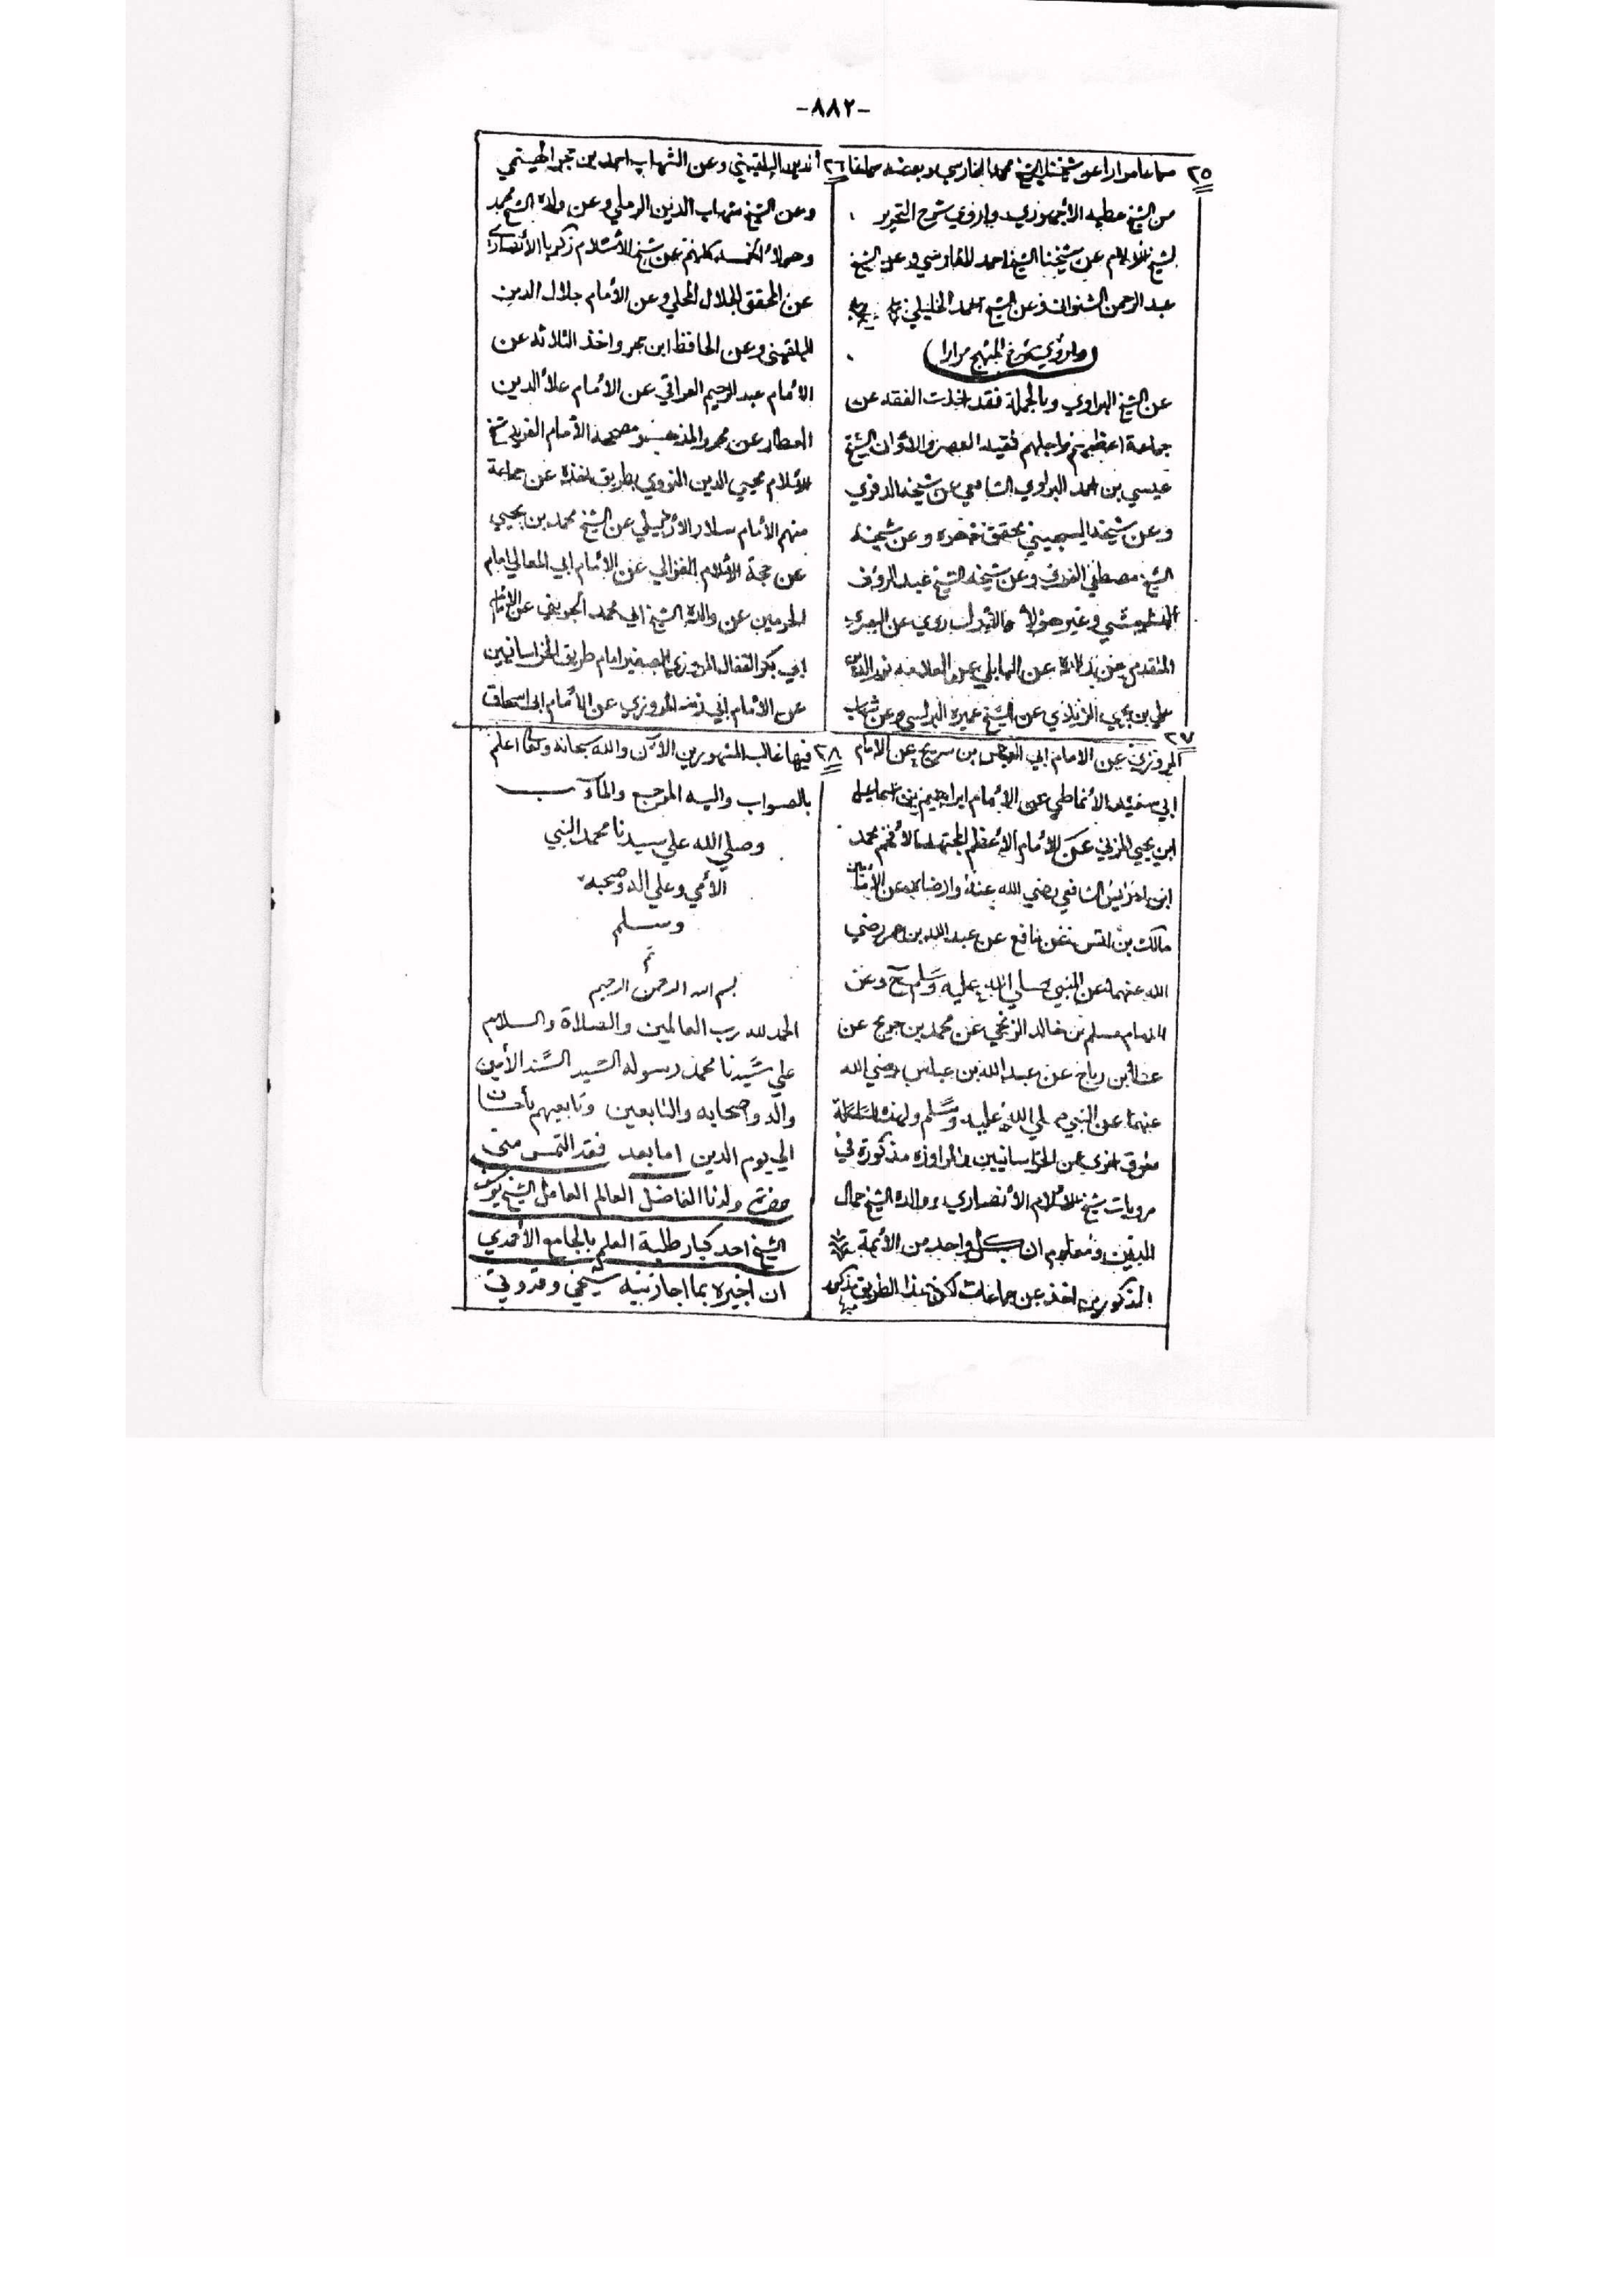 -٨٨٢-
٢٥
سماعا مرارا عن شيخنا الشيخ محمد الفارسي وبعضه سماعا
من الشيخ عطيه الأجهوري وأروي شرح التحرير
لشيخ الأسلام عن شيخنا الشيخ احمد الفارسي وعن الشيخ
عبد الرحمن الشنواني وعن الشيخ احمد الخليلي
(واروي شرح المنهج مرارا)
عن الشيخ البراوي وبالجملة فقد اخذت الفقه عن
جماعة اعظمهم واجلهم فقيه العصر والأوان الشيخ
عيسي بن احمد البراوي الشافعي عن شيخه الدفري
وعن شيخه السجيني محقق عصره وعن شيخه
الشيخ مصطفي العزيزي وعن شيخه الشيخ عبد الرؤف
البشبيشي وغير هؤلأ
المتقدم عن البابلي عن العلامه نور الدين
علي بن يحيي الزيادي عن الشيخ عميره البرلسي وعن شهاب
٢٦
البلقيني وعن الشهاب احمد بن حجر الهيتمي
وعن الشيخ شهاب الدين الرملي وعن ولده الشيخ محمد
وهؤلأ الخمسه كلهم عن شيخ الأسلام زكريا الأنصاري
عن المحقق الجلال المحلي وعن الأمام جلال الدين
البلقيني وعن الحافظ ابن حجر واخذ الثلاثه عن
الأمام عبد الرحيم العراقي عن الأمام علأ الدين
العطار عن محرر المذهب ومصححه الأمام الفريد شيخ
الأسلام محيي الدين النووي بطريق اخذه عن جماعة
منهم الأمام سلار الأردبيلي عن الشيخ محمد بن يحيي
عن حجة الأسلام الغزالي عن الأمام ابي المعالي امام
الحرمين عن والده الشيخ ابي محمد الجويني عن الأمام
ابي بكر القفال المروزي الصغير امام طريق الخراسانيين
عن الأمام ابي زيد المروزي عن الأمام ابي اسحاق
٢٧
المروزي عن الامام ابي العباس بن سريج عن الامام
ابي سعيد الأنماطي عن الأمام ابراهيم بن اسماعيل
ابن يحيي المزني عن الأمام الأعظم المجتهد الأفخم محمد
ابن ادريس الشافعي رضي الله عنه وارضاه عن الأمام
مالك بن انس عن نافع عن عبد الله بن عمر رضي
الله عنهما عن النبي صلي الله عليه وسلم ح وعن
الامام مسلم بن خالد الزنجي عن محمد بن جريج عن
عطأ بن رباح عن عبد الله بن عباس رضي الله
عنهما عن النبي صلي الله عليه وسلم ولهذه السلسلة
طرق اخري عن الخراسانيين والمراوزه مذكورة في
مرويات شيخ الأسلام الأنصاري ووالده الشيخ جمال
الدين ومعلوم ان كل واحد من الأئمة
المذكورين اخذ عن جماعات لكن هذا الطريق مذكور
٢٨
فيها غالب المشهورين الآن والله سبحانه وتعالى اعلم
بالصواب واليه المرجع والمآب
وصلي الله علي سيدنا محمد النبي
الأمي وعلي اله وصحبه
وسلم
تم
بسم الله الرحمن الرحيم
الحمد لله رب العالمين والصلاة والسلام
علي سيدنا محمد رسوله السيد السند الأمين
واله وصحابه والتابعين وتابعيهم بأحسان
الي يوم الدين اما بعد فقد التمس مني
حضرة ولدنا الفاضل العالم العامل الشيخ
الشيخ احد كبار طلبة العلم بالجامع الأحمدي
ان اجيزه بما اجازنيه شيخي وقدوتي